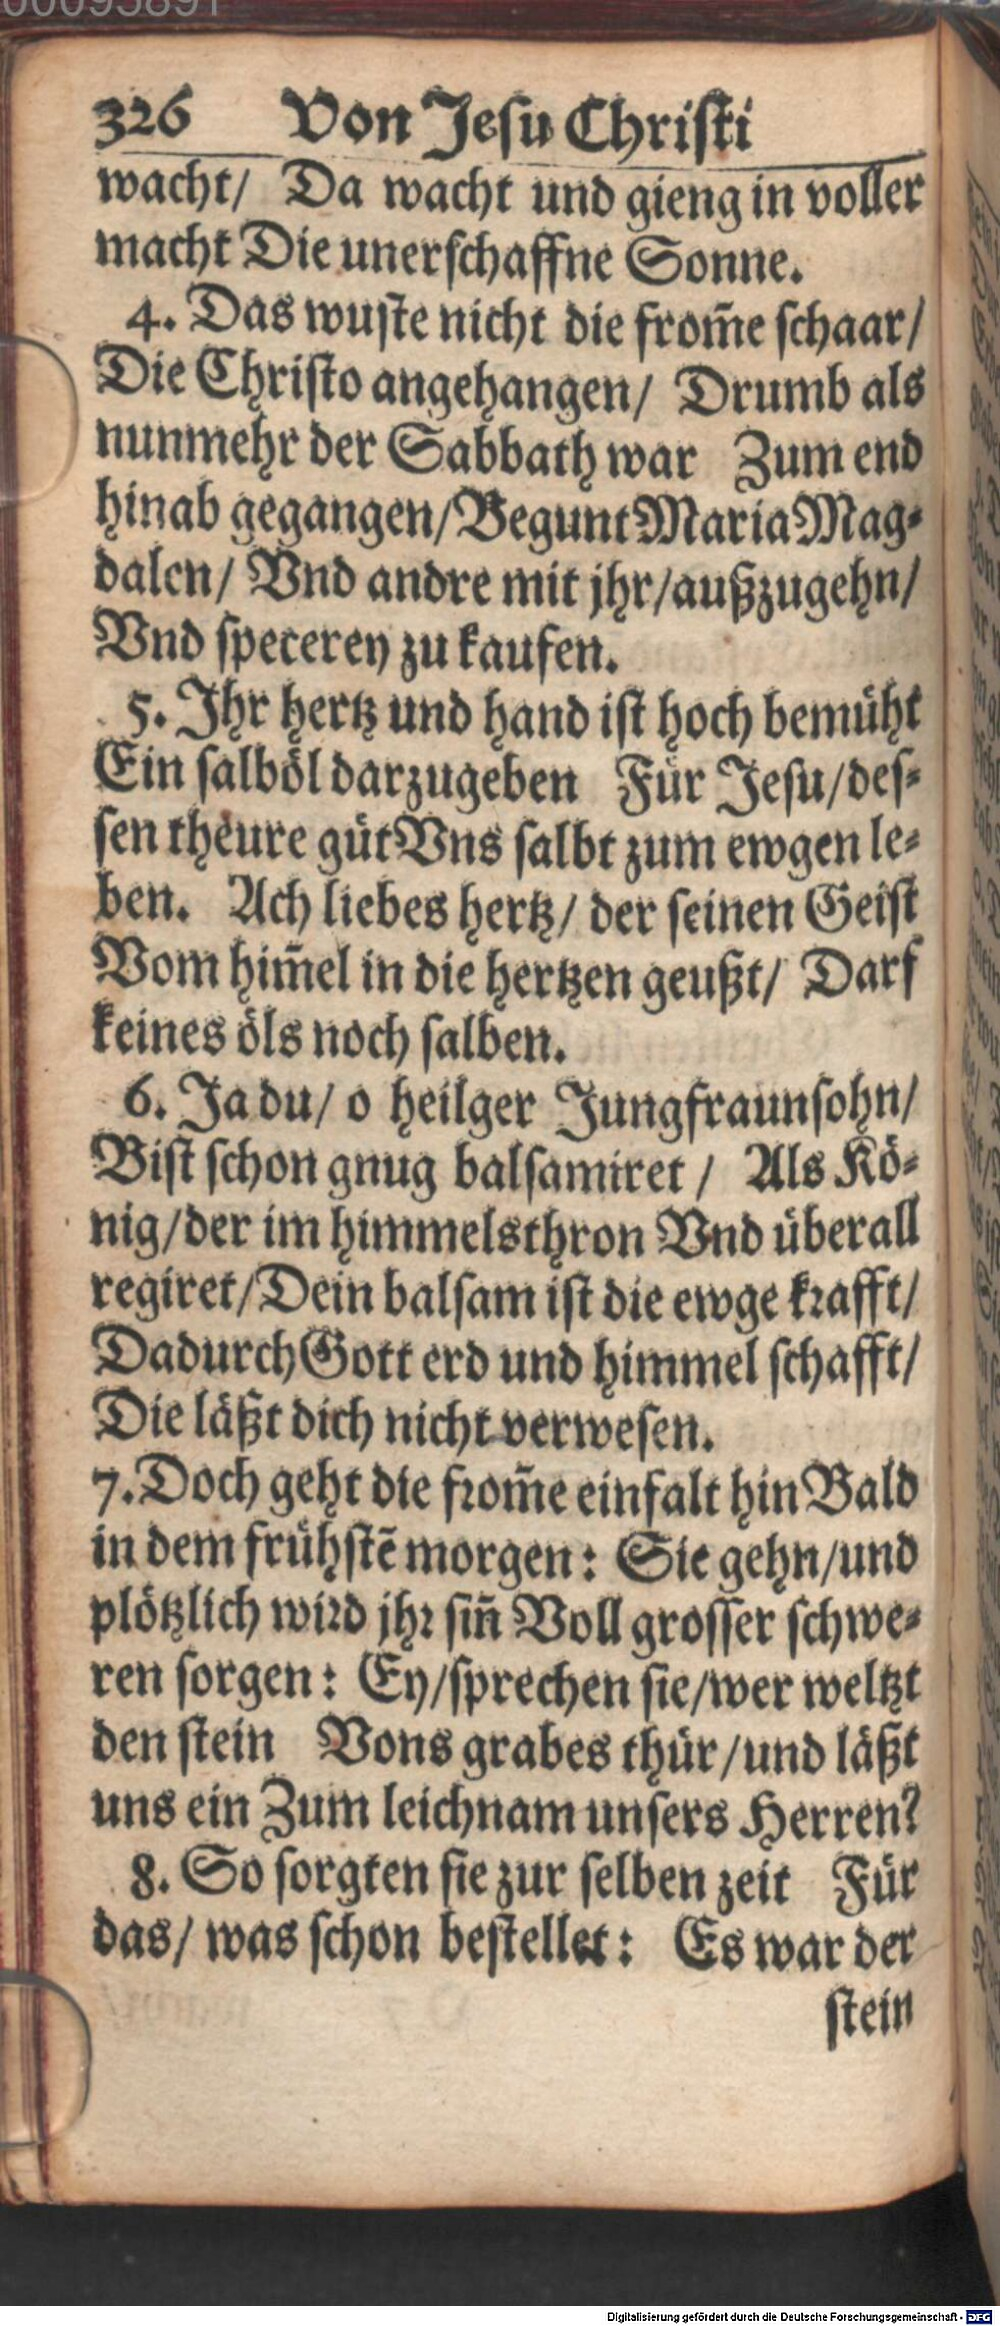 00095891
326 Von Jeſu Chriſti
wacht/ Da wacht und gieng in voller
macht Die unerſchaffne Sonne.
4. Das wuſte nicht die from̃e ſchaar/
Die Chriſto angehangen/ Drumb als
nunmehr der Sabbath war Zum end
hinab gegangen/ Begunt Maria Mag⸗
dalen/ Vnd andre mit jhr/ außzugehn/
Vnd ſpecerey zu kaufen.
5. Ihr hertz und hand iſt hoch bemüht
Ein ſalböl darzugeben Für Jeſu/ deſ⸗
ſen theure güt Vns ſalbt zum ewgen le⸗
ben. Ach liebes hertz/ der ſeinen Geiſt
Vom him̃el in die hertzen geußt/ Darf
keines öls noch ſalben.
6. Ja du/ o heilger Jungfraunſohn/
Biſt ſchon gnug balſamiret/ Als Kö⸗
nig/ der im himmelsthron Vnd überall
regiret/ Dein balſam iſt die ewge krafft/
Dadurch Gott erd und himmel ſchafft/
Die läßt dich nicht verweſen.
7. Doch geht die from̃e einfalt hin Bald
in dem frühſtẽ morgen: Sie gehn/ und
plötzlich wird jhr ſiñ Voll groſſer ſchwe⸗
ren ſorgen: Ey/ ſprechen ſie/ wer weltzt
den ſtein Vons grabes thür/ und läßt
uns ein Zum leichnam unſers Herren?
8. So ſorgten ſie zur ſelben zeit Für
das/ was ſchon beſtellet: Es war der
ſtein
Digitalisierung gefördert durch die Deutsche Forschungsgemeinschaft - DFG